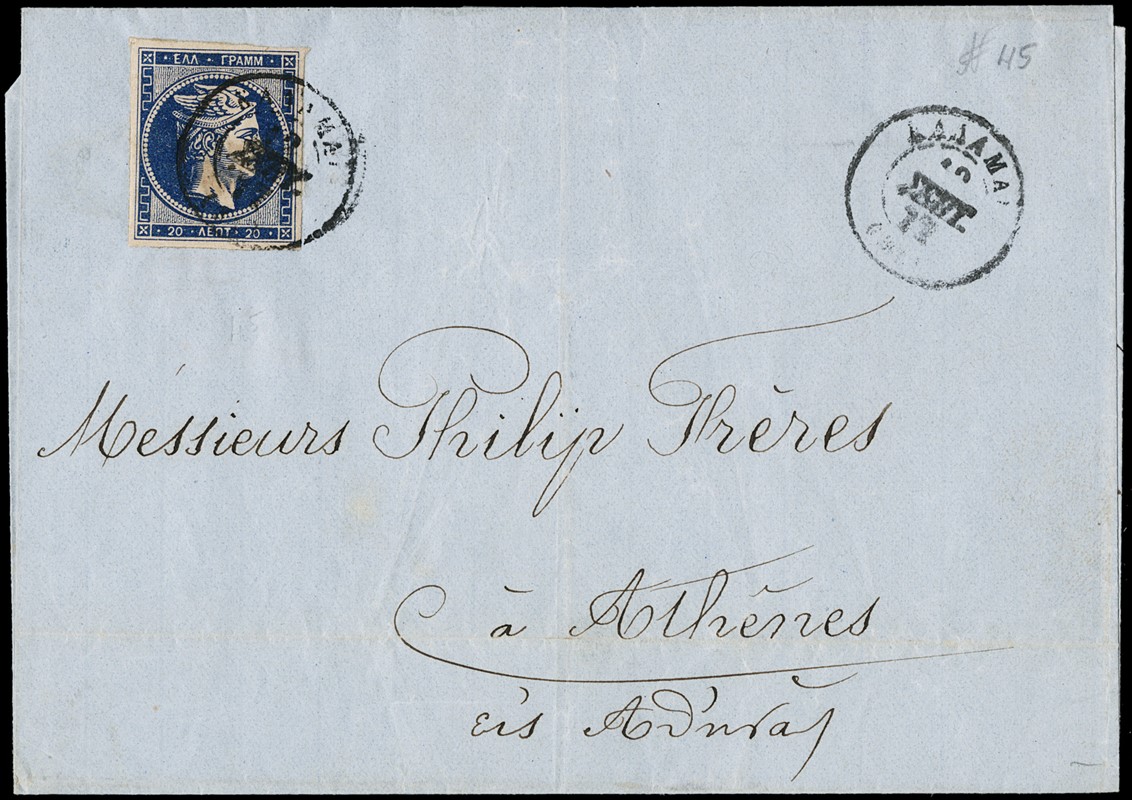 ΕΛΛ · ΓΡΑΜΜ
20 · ΛΕΠΤ · 20
# 45
ΚΑΛΑΜΑΙ
ΣΕΠΤ.
72
Messieurs Philip Frères
à Athènes
εἰς Ἀθήνας